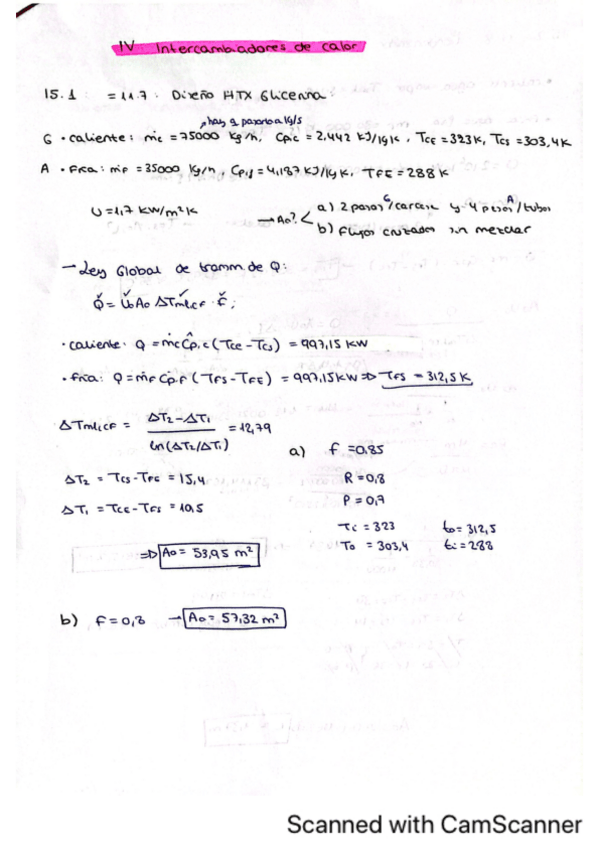 IV Intercambiadores de calor
15.1 : = 11.7 : Diseño HTX Glicerina:
, hay q pasarlo a kg/s
G • caliente: ṁc = 75000 kg/h, Cp,c = 2,442 kJ/kgK, TCE = 323K, TCS = 303,4K
A • fría: ṁF = 35000 kg/h, Cp,f = 4,187 kJ/kgK, TFE = 288 K
U = 1,7 kW/m²K → Ao? < a) 2 pasos/carcasa y 4 pasos/tubos
G A
b) Flujos cruzados sin mezclar
→ Ley Global de transm. de Q:
Q̇ = Uo Ao ΔTmlCF · F;
• caliente: Q = ṁc Cp,c (TCE - TCS) = 997,15 KW
• fría: Q = ṁF Cp,F (TFS - TFE) = 997,15 KW => TFS = 312,5 K
ΔTmlCF = ΔT2 - ΔT1 / ln(ΔT2/ΔT1) = 12,79
a) F = 0,85
ΔT2 = TCS - TFE = 15,4
R = 0,8
P = 0,7
ΔT1 = TCE - TFS = 10,5
Ti = 323 to = 312,5
To = 303,4 ti = 288
=> Ao = 53,95 m²
b) F = 0,8 → Ao = 57,32 m²
Scanned with CamScanner